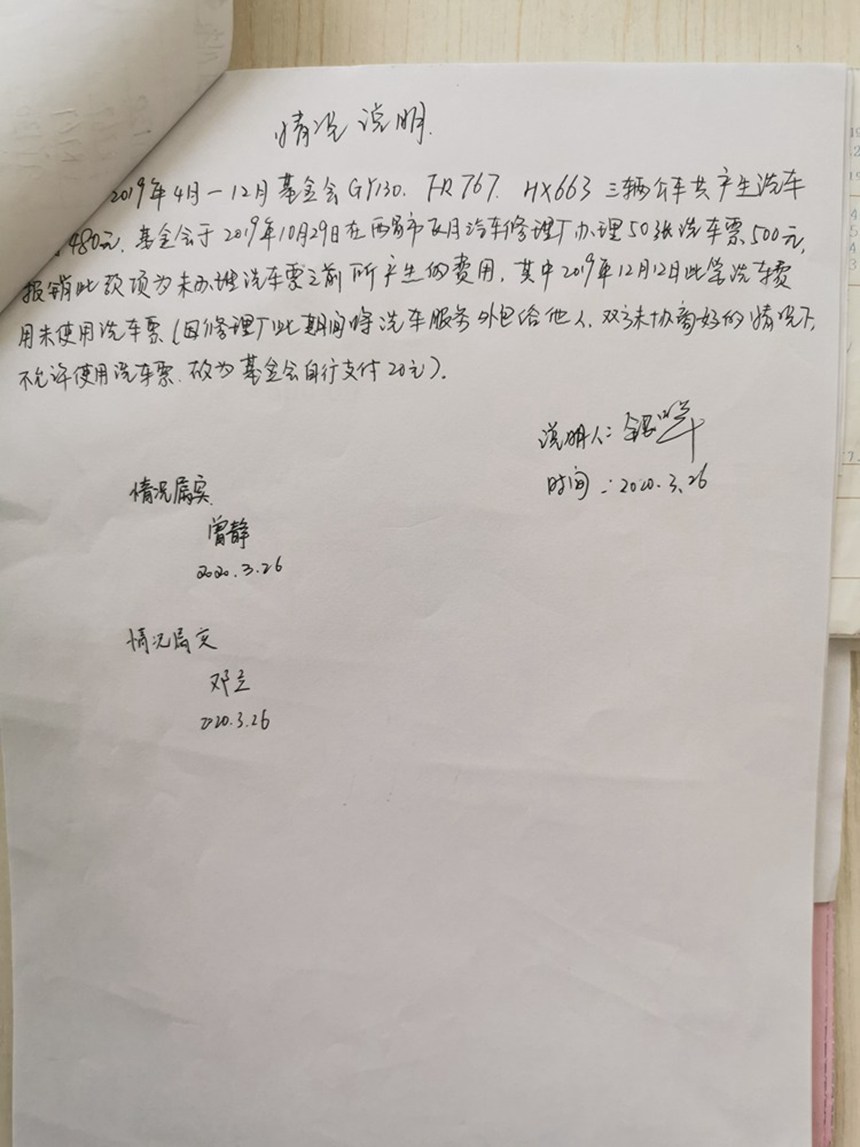 情况说明.
2019年4月-12月基金会GY130. FR767. HX663三辆公车共产生洗车
480元. 基金会于2019年10月29日在西宁市 月汽车修理厂办理50张洗车票500元,
报销此款项为未办理洗车票之前所产生的费用. 其中2019年12月12日此 洗车费
用未使用洗车票(因修理厂此期间将洗车服务外包给他人. 双方未协商好的情况下,
不允许使用洗车票. 故为基金会自行支付20元).
说明人:
时间:2020.3.26
情况属实.
曾静
2020.3.26
情况属实
邓立
2020.3.26